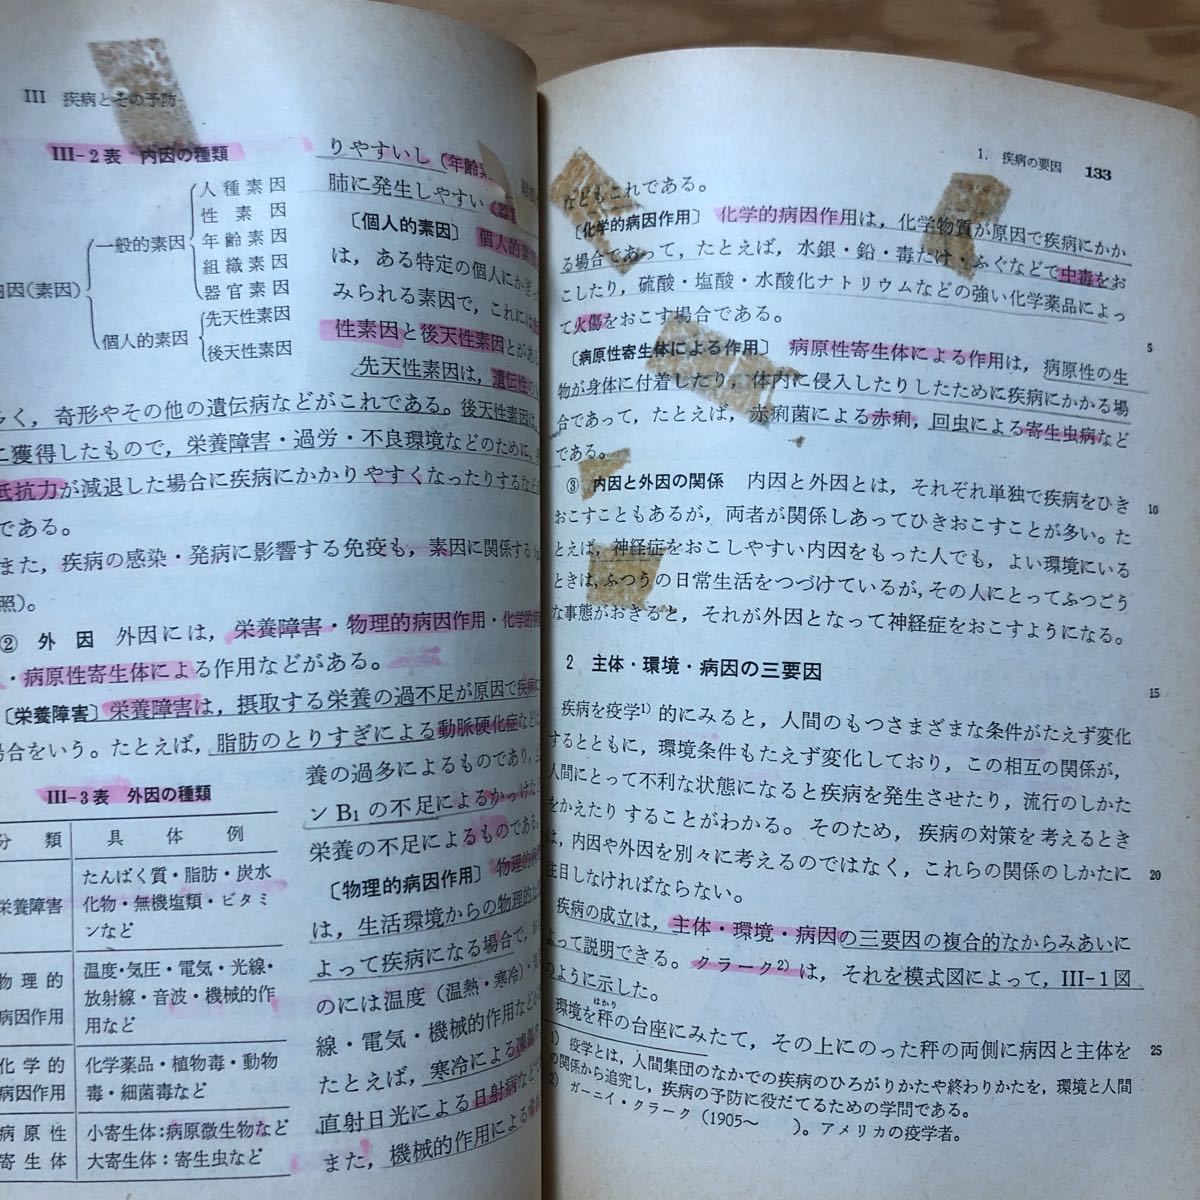 III 疾病とその予防
III-2表 内因の種類
人種素因
性素因
一般的素因
年齢素因
組織素因
器官素因
内因(素因)
先天性素因
個人的素因
後天性素因
りやすいし(年齢素
肺に発生しやすい(器官
〔個人的素因〕 個人的素因
は，ある特定の個人にかぎっ
みられる素因で，これには
性素因と後天性素因とがある
先天性素因は，遺伝性の
く，奇形やその他の遺伝病などがこれである。後天性素因は
に獲得したもので，栄養障害・過労・不良環境などのために，
抵抗力が減退した場合に疾病にかかりやすくなったりするなど
である。
また，疾病の感染・発病に影響する免疫も，素因に関係する
照)。
② 外因 外因には，栄養障害・物理的病因作用・化学的病
・病原性寄生体による作用などがある。
〔栄養障害〕 栄養障害は，摂取する栄養の過不足が原因で疾病に
場合をいう。たとえば，脂肪のとりすぎによる動脈硬化症などは
養の過多によるものであり，
ンB₁の不足によるかっけな
栄養の不足によるものである。
〔物理的病因作用〕 物理的病
は，生活環境からの物理的な
よって疾病になる場合で，
のには温度(温熱・寒冷)・
線・電気・機械的作用など
たとえば，寒冷による凍傷
直射日光による日射病など
また，機械的作用による
III-3表 外因の種類
分類 具体例
栄養障害 たんぱく質・脂肪・炭水
化物・無機塩類・ビタミ
ンなど
物理的 温度・気圧・電気・光線・
病因作用 放射線・音波・機械的作
用など
化学的 化学薬品・植物毒・動物
病因作用 毒・細菌毒など
病原性 小寄生体：病原微生物など
寄生体 大寄生体：寄生虫など
1. 疾病の要因 133
などもこれである。
〔化学的病因作用〕 化学的病因作用は，化学物質が原因で疾病にかか
る場合であって，たとえば，水銀・鉛・毒たけ・ふぐなどで中毒をお
こしたり，硫酸・塩酸・水酸化ナトリウムなどの強い化学薬品によっ
て火傷をおこす場合である。
5
〔病原性寄生体による作用〕 病原性寄生体による作用は，病原性の生
物が身体に付着したり，体内に侵入したりしたために疾病にかかる場
合であって，たとえば，赤痢菌による赤痢，回虫による寄生虫病など
である。
③ 内因と外因の関係 内因と外因とは，それぞれ単独で疾病をひき
10
おこすこともあるが，両者が関係しあってひきおこすことが多い。た
とえば，神経症をおこしやすい内因をもった人でも，よい環境にいる
ときは，ふつうの日常生活をつづけているが，その人にとってふつごう
な事態がおきると，それが外因となって神経症をおこすようになる。
2 主体・環境・病因の三要因
15
疾病を疫学¹⁾的にみると，人間のもつさまざまな条件がたえず変化
するとともに，環境条件もたえず変化しており，この相互の関係が，
人間にとって不利な状態になると疾病を発生させたり，流行のしかた
をかえたりすることがわかる。そのため，疾病の対策を考えるとき
は，内因や外因を別々に考えるのではなく，これらの関係のしかたに
20
注目しなければならない。
疾病の成立は，主体・環境・病因の三要因の複合的なからみあいに
よって説明できる。クラーク²⁾は，それを模式図によって，III-1図
のように示した。
はかり
環境を秤の台座にみたて，その上にのった秤の両側に病因と主体を
25
1) 疫学とは，人間集団のなかでの疾病のひろがりかたや終わりかたを，環境と人間
の関係から追究し，疾病の予防に役だてるための学問である。
2) ガーニイ・クラーク(1905〜 )。アメリカの疫学者。